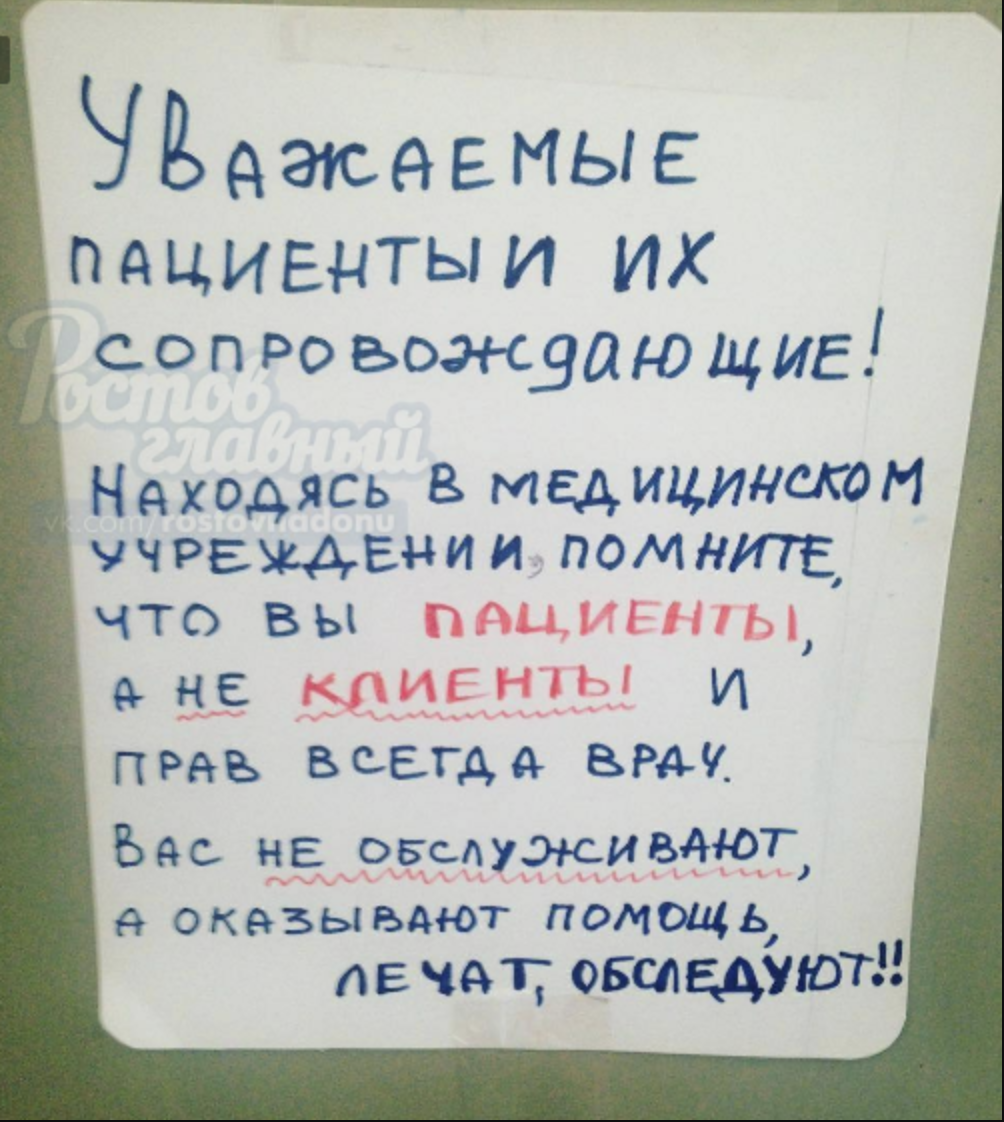 Уважаемые
пациенты и их
сопровождающие!
Находясь в медицинском
учреждении, помните,
что вы пациенты,
а не клиенты и
прав всегда врач.
Вас не обслуживают,
а оказывают помощь,
лечат, обследуют!!
Ростов
главный
vk.com/rostovnadonu